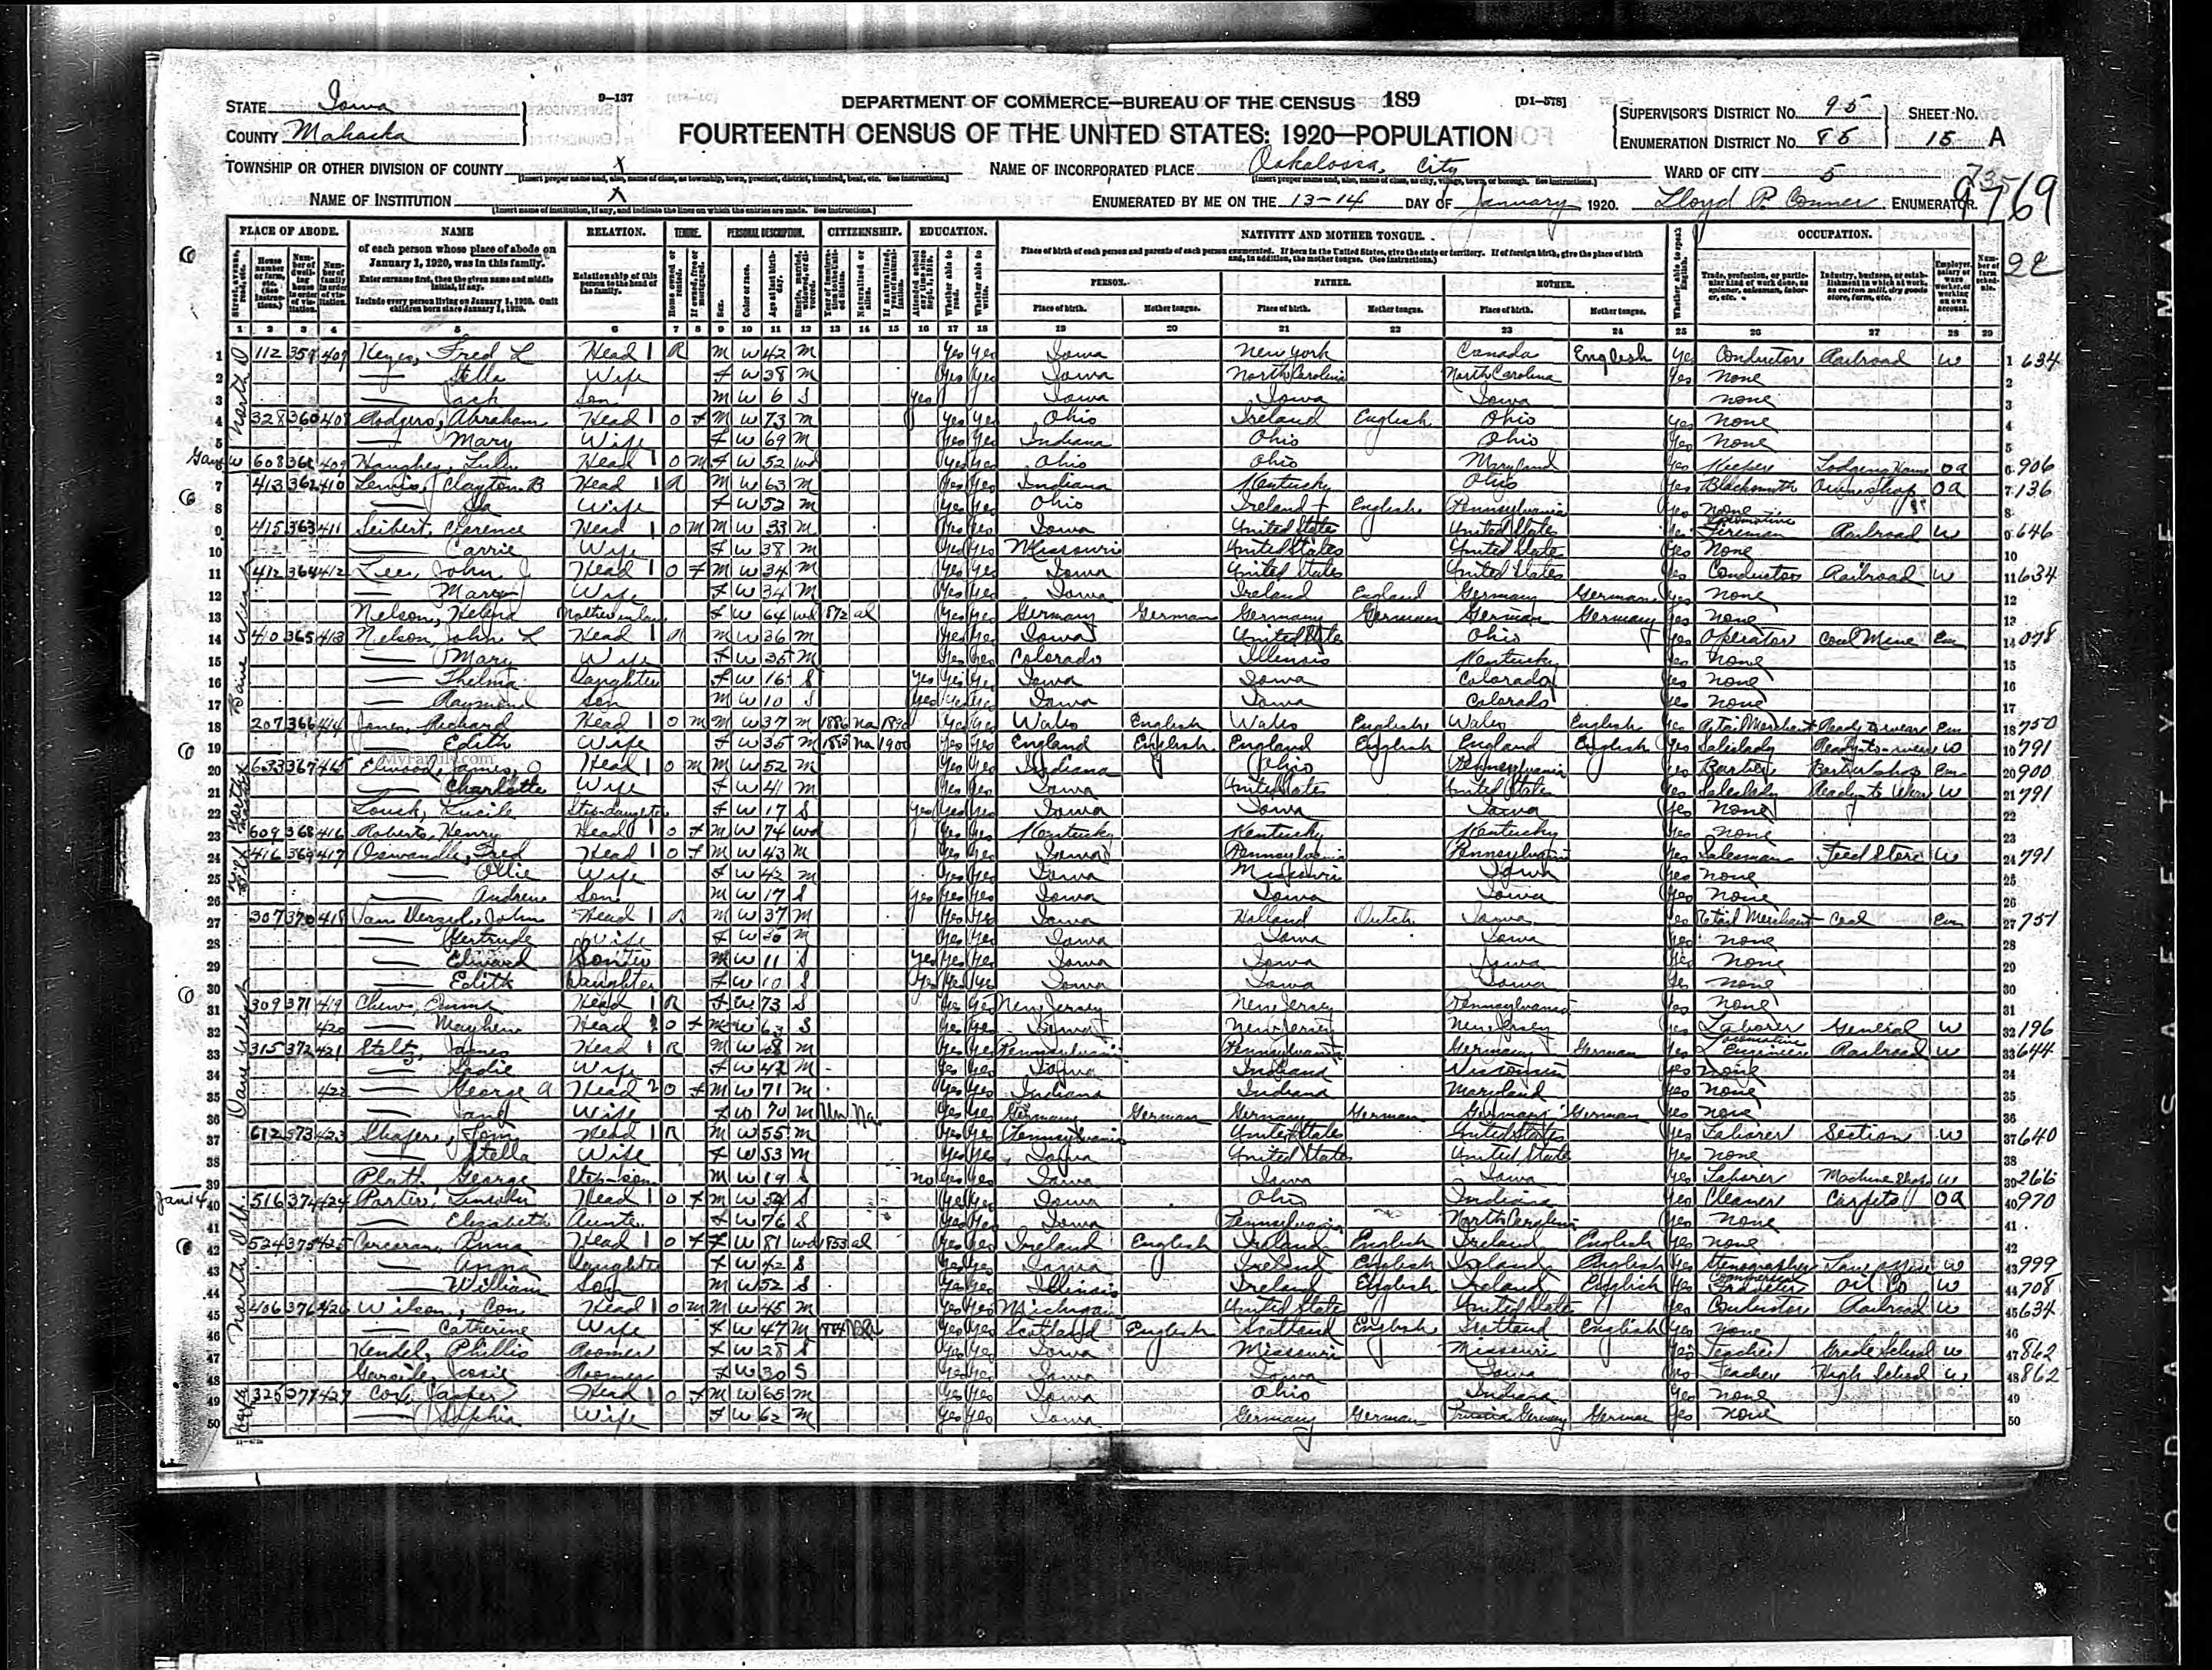 STATE Iowa
COUNTY Mahaska
9—137
DEPARTMENT OF COMMERCE—BUREAU OF THE CENSUS 189
[D1—578]
FOURTEENTH CENSUS OF THE UNITED STATES: 1920—POPULATION
SUPERVISOR'S DISTRICT No. 95
ENUMERATION DISTRICT No. 85
SHEET No. 15 A
TOWNSHIP OR OTHER DIVISION OF COUNTY X
NAME OF INCORPORATED PLACE Oskaloosa, City
WARD OF CITY 5
NAME OF INSTITUTION X
ENUMERATED BY ME ON THE 13-14 DAY OF January 1920. Lloyd P. Conner ENUMERATOR.
9769
PLACE OF ABODE. NAME RELATION. TENURE. PERSONAL DESCRIPTION. CITIZENSHIP. EDUCATION. NATIVITY AND MOTHER TONGUE. OCCUPATION.
of each person whose place of abode on January 1, 1920, was in this family.
Enter surname first, then the given name and middle initial, if any.
Include every person living on January 1, 1920. Omit children born since January 1, 1920.
Relationship of this person to the head of the family.
PERSON. FATHER. MOTHER.
Place of birth. Mother tongue. Place of birth. Mother tongue. Place of birth. Mother tongue.
1 2 3 4 5 6 7 8 9 10 11 12 13 14 15 16 17 18 19 20 21 22 23 24 25 26 27 28 29
1 112 359 407 Keyes, Fred L Head 1 R M W 42 M Yes Yes Iowa New York Canada English Yes Conductor Railroad W 634
2 — Stella Wife F W 38 M Yes Yes Iowa North Carolina North Carolina Yes None
3 — Jack Son M W 6 S Yes Iowa Iowa Iowa None
4 328 360 408 Rodgers, Abraham Head 1 O F M W 73 M Yes Yes Ohio Ireland English Ohio Yes None
5 — Mary Wife F W 69 M Yes Yes Indiana Ohio Ohio Yes None
6 608 361 409 Haughey, Lulu Head 1 O M F W 52 Wd Yes Yes Ohio Ohio Maryland Yes Keeper Lodging House OA 906
7 413 362 410 Lewis, Clayton B Head 1 R M W 63 M Yes Yes Indiana Kentucky Ohio Yes Blacksmith Own shop OA 136
8 — Ida Wife F W 52 M Yes Yes Ohio Ireland English Pennsylvania Yes None
9 415 363 411 Seibert, Clarence Head 1 O M M W 33 M Yes Yes Iowa United States United States Yes Locomotive Fireman Railroad W 646
10 — Carrie Wife F W 38 M Yes Yes Missouri United States United States Yes None
11 412 364 412 Lee, John J Head 1 O F M W 34 M Yes Yes Iowa United States United States Yes Conductor Railroad W 634
12 — Mary Wife F W 34 M Yes Yes Iowa Ireland England Germany German Yes None
13 Nelson, Helena Mother in law F W 64 Wd 1872 Al Yes Yes Germany German Germany German German Germany Yes None
14 410 365 413 Nelson, John L Head 1 R M W 36 M Yes Yes Iowa United States Ohio Yes Operator Coal Mine Em 078
15 — Mary Wife F W 35 M Yes Yes Colorado Illinois Kentucky Yes None
16 — Thelma Daughter F W 16 S Yes Yes Yes Iowa Iowa Colorado Yes None
17 — Raymond Son M W 10 S Yes Yes Yes Iowa Iowa Colorado Yes None
18 207 366 414 Jones, Richard Head 1 O M M W 37 M 1886 Na Yes Yes Wales English Wales English Wales English Yes Retail Merchant Ready to wear Em 750
19 — Edith Wife F W 35 M Na 1900 Yes Yes England English England English England English Yes Saleslady Ready-to-wear W 791
20 633 367 415 Elwood, James O Head 1 O M M W 52 M Yes Yes Indiana Ohio Pennsylvania Yes Barber Barber shop Em 900
MyFamily.com
21 — Charlotte Wife F W 41 M Yes Yes Iowa United States United States Yes Saleslady Ready to Wear W 791
22 Louck, Lucile Step-daughter F W 17 S Yes Yes Yes Iowa Iowa Iowa Yes None
23 609 368 416 Roberts, Henry Head 1 O F M W 74 Wd Yes Yes Kentucky Kentucky Kentucky Yes None
24 416 369 417 Oswandle, Fred Head 1 O F M W 43 M Yes Yes Iowa Pennsylvania Pennsylvania Yes Salesman Feed Store W 791
25 — Ollie Wife F W 42 M Yes Yes Iowa Missouri Iowa Yes None
26 — Andrew Son M W 17 S Yes Yes Yes Iowa Iowa Iowa Yes None
27 307 370 418 John Head 1 R M W 37 M Yes Yes Iowa Holland Dutch Iowa Yes Retail Merchant Coal Em 751
28 — Gertrude Wife F W M Yes Yes Iowa Iowa Iowa Yes None
29 — Edward Son M W 11 S Yes Yes Yes Iowa Iowa Iowa Yes None
30 — Edith Daughter F W 10 S Yes Yes Yes Iowa Iowa Iowa Yes None
31 309 371 419 Chew, Emma Head 1 R F W 73 S Yes Yes New Jersey New Jersey Pennsylvania Yes None
32 420 — Mayhew Head 2 O F M W 63 S Yes Yes Iowa New Jersey New Jersey Yes Laborer General W 196
33 315 372 421 Steltz, James Head 1 R M W M Yes Yes Pennsylvania Pennsylvania Germany German Yes Locomotive Engineer Railroad W 644
34 — Sadie Wife F W 42 M Yes Yes Iowa Indiana Wisconsin Yes None
35 422 — George A Head 2 O F M W 71 M Yes Yes Indiana Indiana Maryland Yes None
36 — Jane Wife F W 70 M Un Na Yes Yes Germany German Germany German Germany German Yes None
37 612 373 423 Shafer, Tom Head 1 R M W 55 M Yes Yes Pennsylvania United States United States Yes Laborer Section W 640
38 — Stella Wife F W 53 M Yes Yes Iowa United States United States Yes None
39 Platt, George Step-son M W 19 S No Yes Yes Iowa Iowa Iowa Yes Laborer Machine Shop W 266
Jan 14 40 516 374 424 Porter, Lincoln Head 1 O F M W S Yes Yes Iowa Ohio Indiana Yes Cleaner Carpets OA 970
41 — Elizabeth Aunt F W 76 S Yes Yes Iowa Pennsylvania North Carolina Yes None
42 524 375 425 Corcoran, Anna Head 1 O F F W 81 Wd 1853 Al Yes Yes Ireland English Ireland English Ireland English Yes None
43 — Anna Daughter F W 42 S Yes Yes Iowa Ireland English Ireland English Yes Stenographer Law office W 999
44 — William Son M W 52 S Yes Yes Illinois Ireland English Ireland English Yes Commercial Traveler Oil Co W 708
45 406 376 426 Wilson, Con Head 1 O M M W 45 M Yes Yes Michigan United States United States Yes Conductor Railroad W 634
46 — Catherine Wife F W 47 M Na Yes Yes Scotland English Scotland English Scotland English Yes None
47 Kendel, Phillis Roomer F W 28 S Yes Yes Iowa Missouri Missouri Yes Teacher Grade School W 862
48 Garside, Jessie Roomer F W 30 S Yes Yes Iowa Iowa Iowa Yes Teacher High School W 862
49 325 377 427 Cox, Jasper Head 1 O F M W 65 M Yes Yes Iowa Ohio Indiana Yes None
50 — Sophia Wife F W 62 M Yes Yes Iowa Germany German Prussia Germany German Yes None
KODAK SAFETY FILM